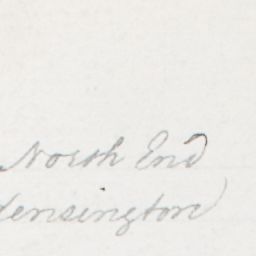 North End
Kensington